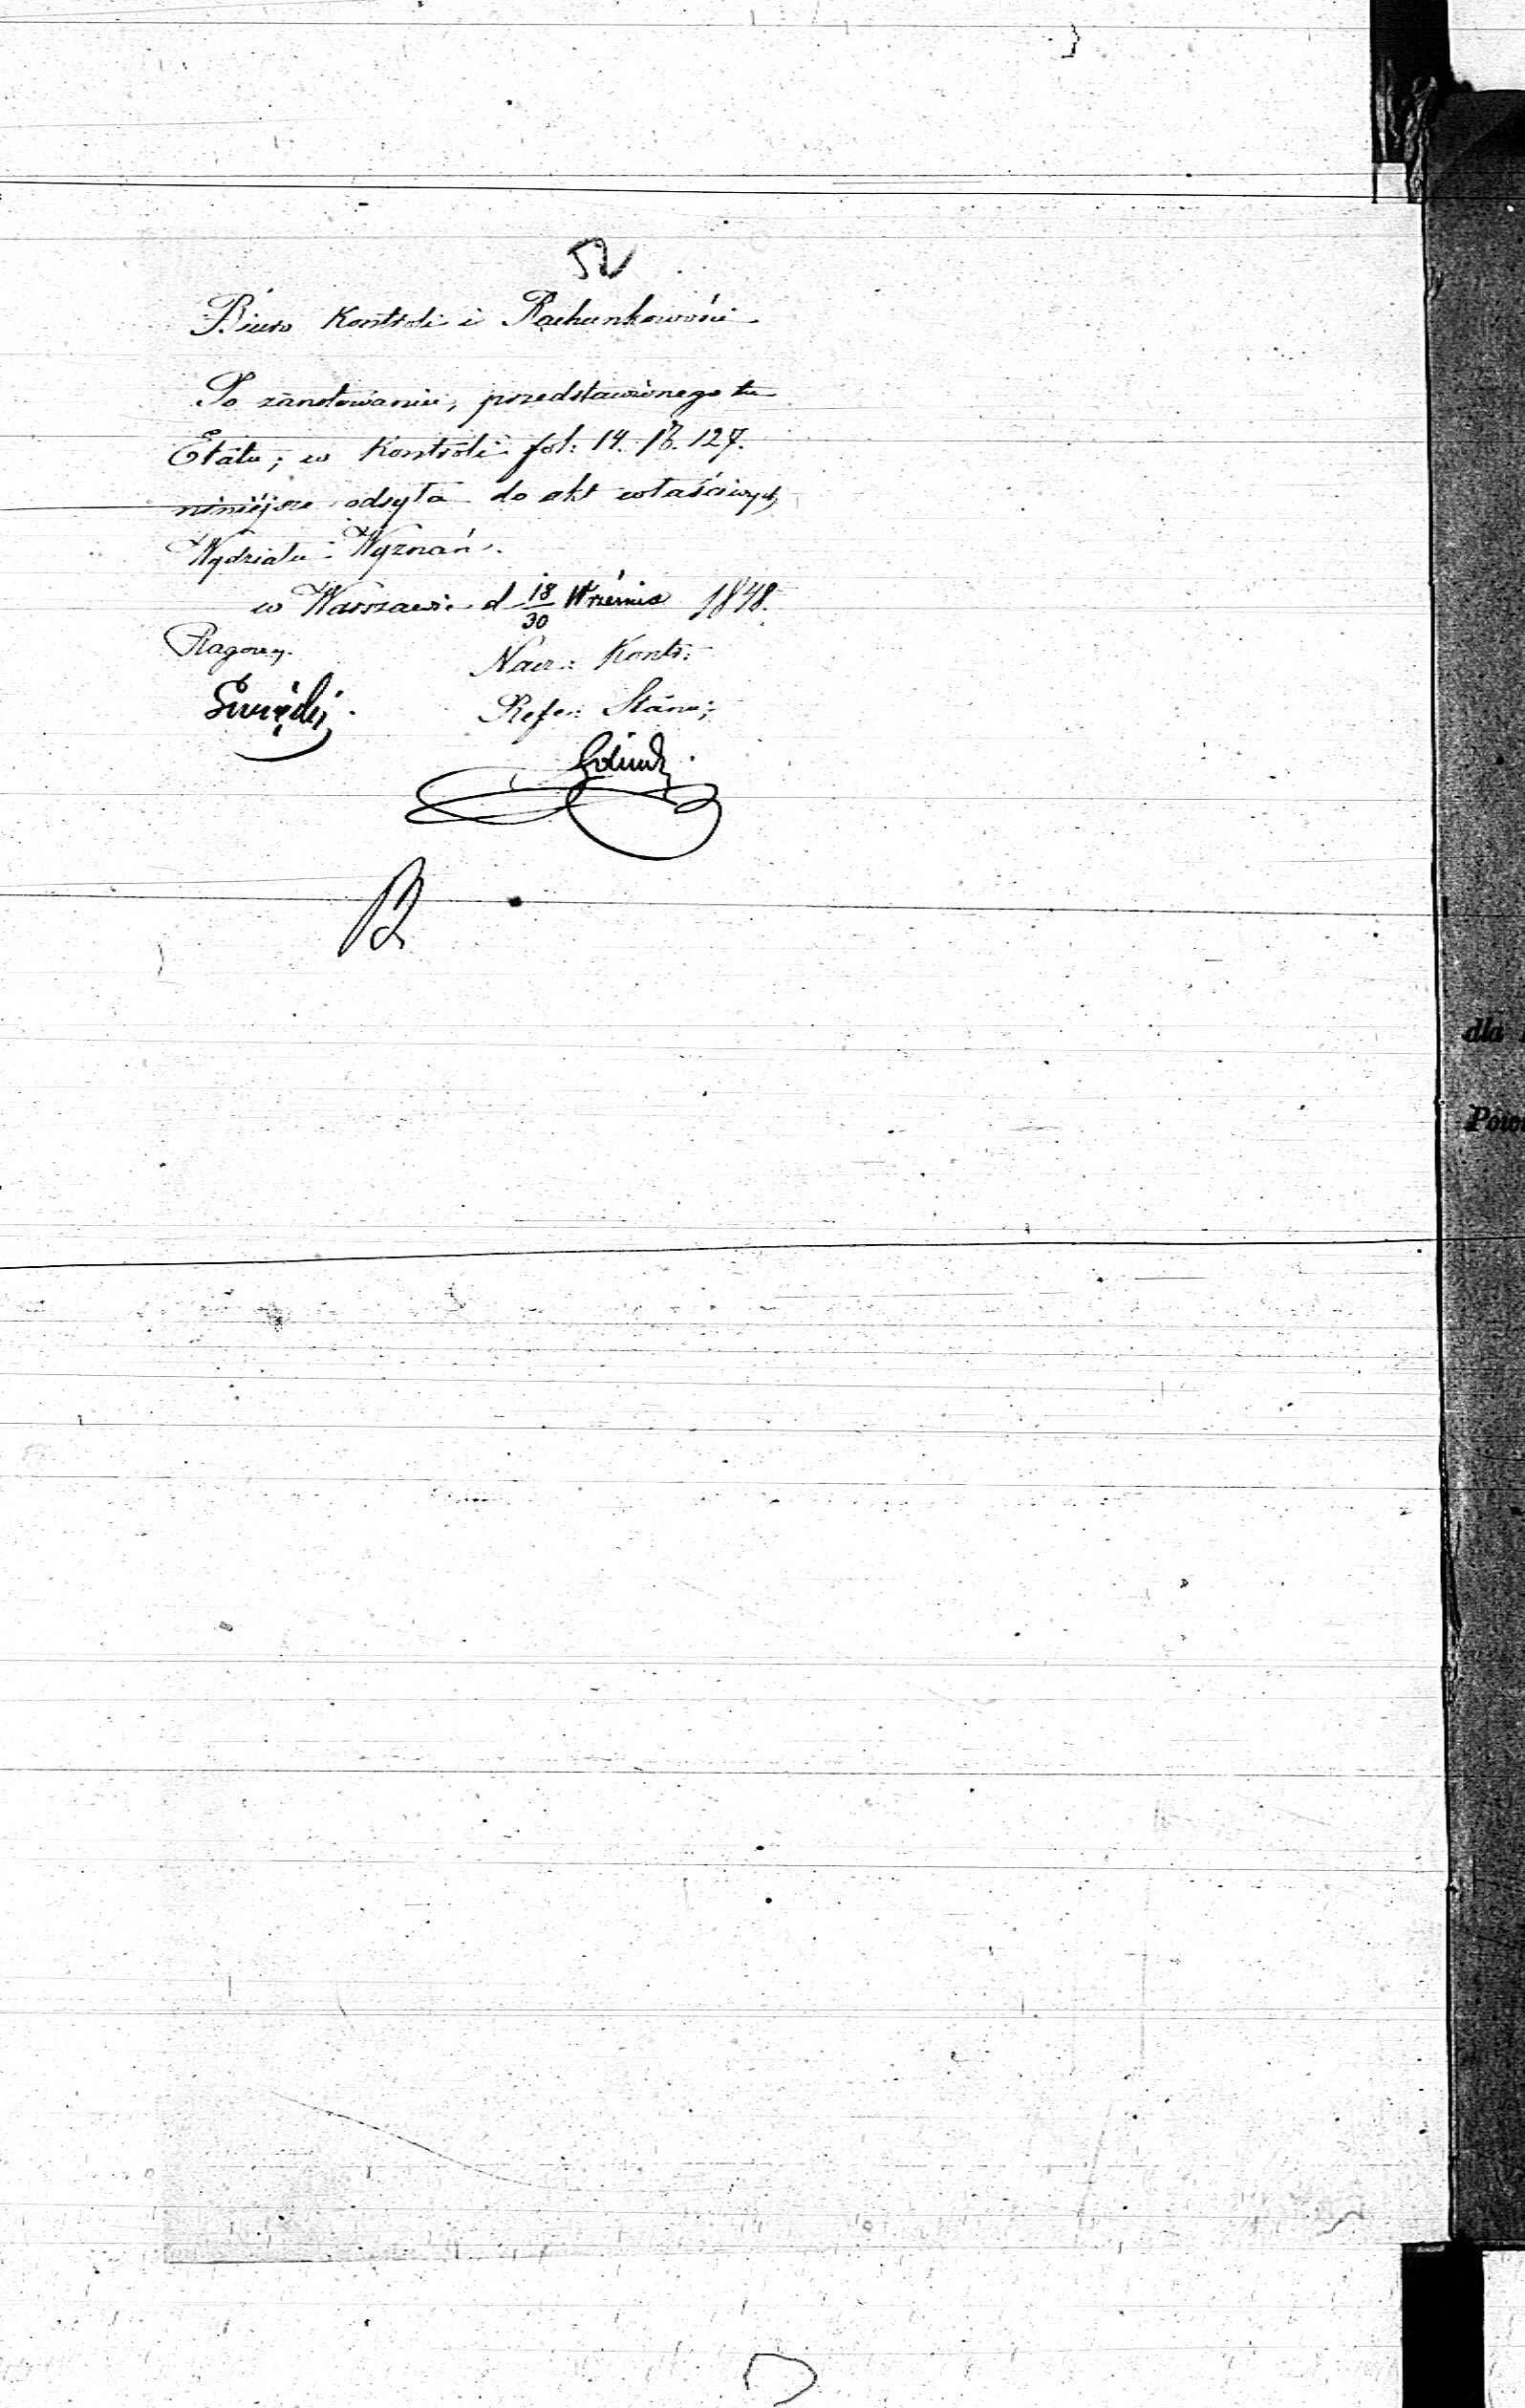 52
Biuro Kontroli i Rachunkowości
Po zanotowaniu, przedstawionego tu
Etatu; w Kontroli fol: 14. 127.
niniejsze odsyła do akt właściwych
Wydziału Wyznań.
w Warszawie d 18/30 Września 1848.
Nacz: Kontr:
Refer: Stanu;
dla
Powi